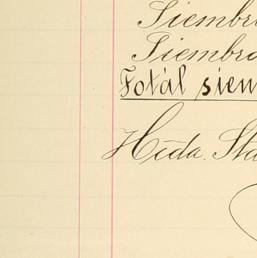 Siembr
Siembra
Total siem
Hcda. Sta